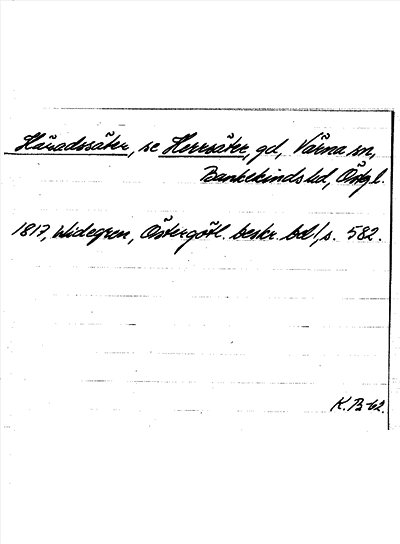 Häradssäter, se Herrsäter, gd, Värna sn,
Bankekinds hd, Östgl.
1817, Widegren, Östergötl. beskr. bd 1, s. 582.
K.B-62.